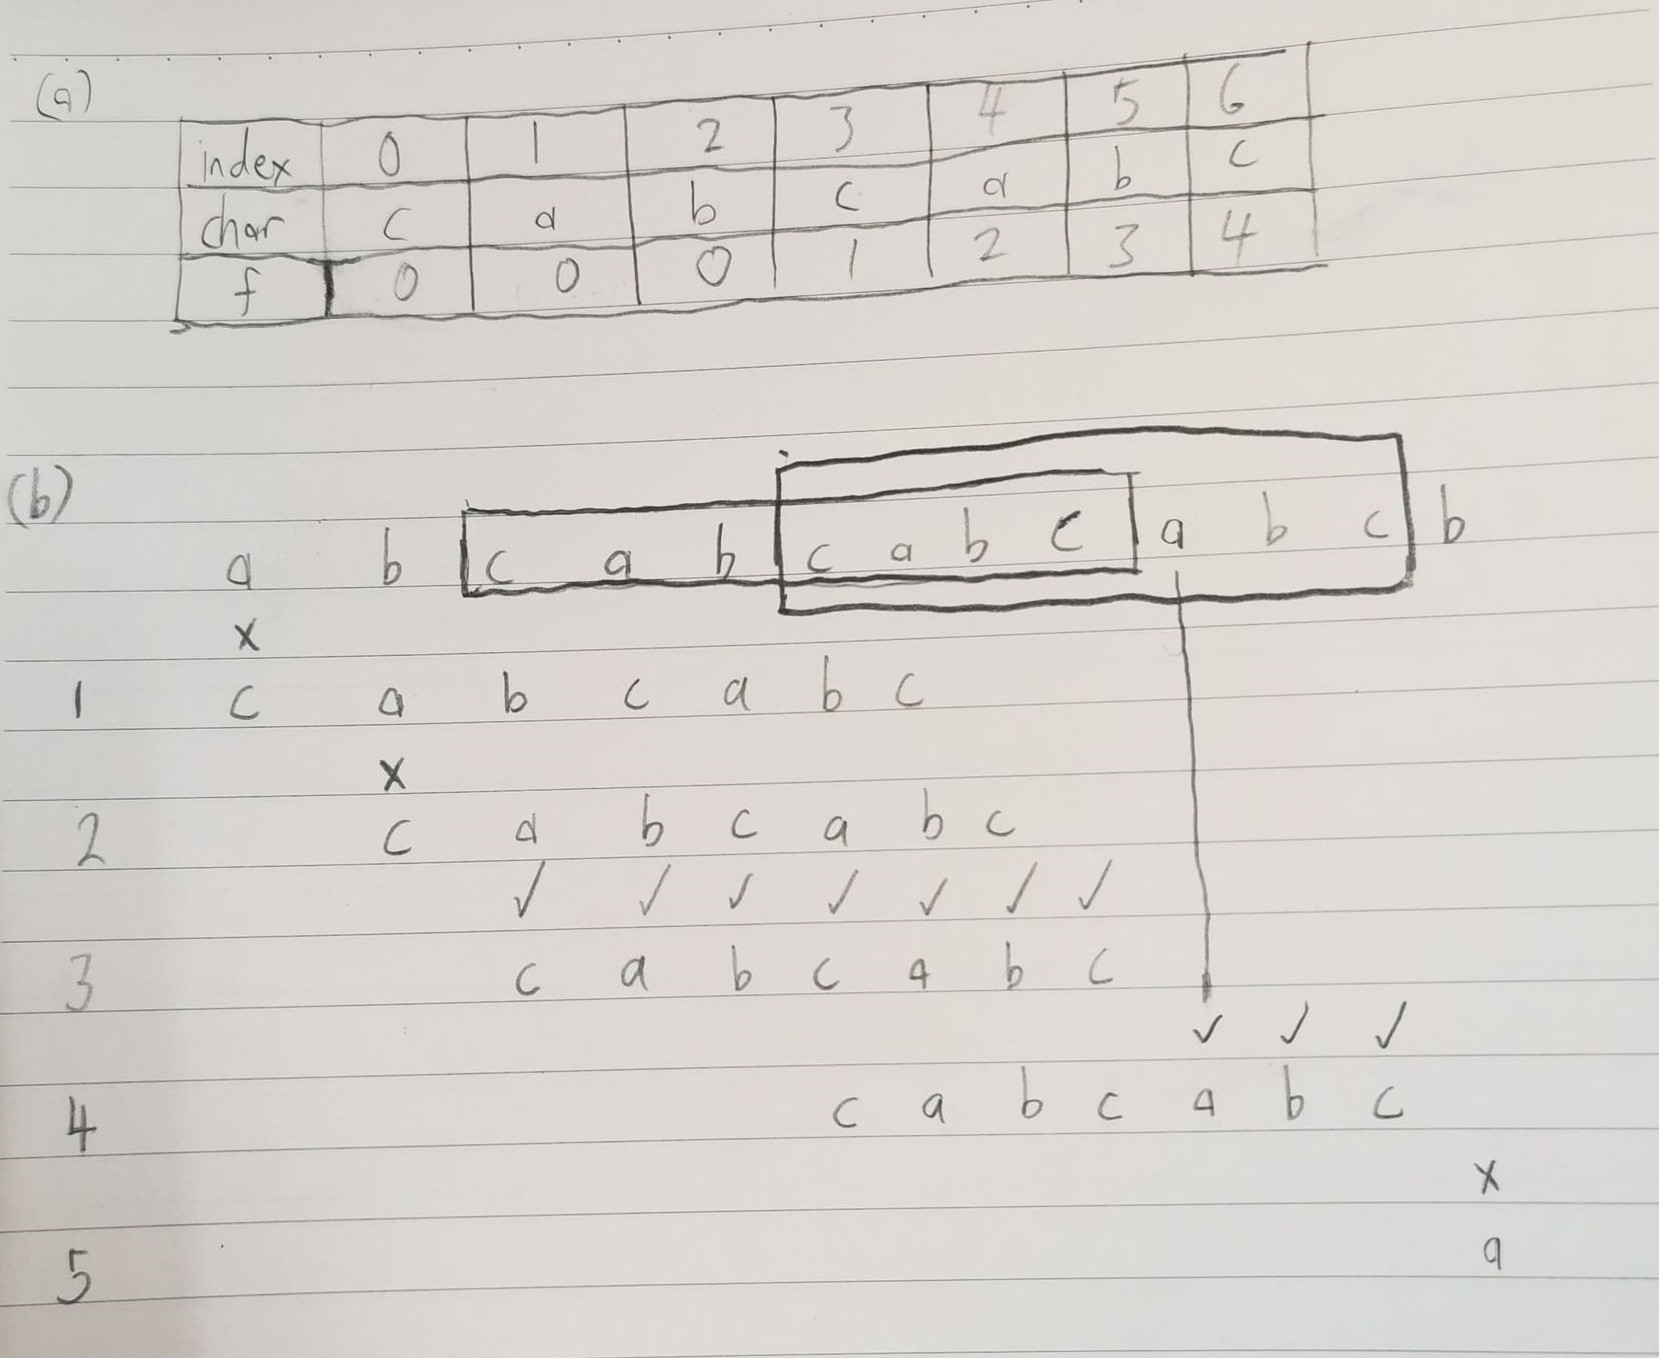 (a)
index 0 1 2 3 4 5 6
char c a b c a b c
f 0 0 0 1 2 3 4
(b)
a b c a b c a b c a b c b
x
1 c a b c a b c
x
2 c a b c a b c
✓ ✓ ✓ ✓ ✓ ✓ ✓
3 c a b c a b c
✓ ✓ ✓
4 c a b c a b c
x
5 a